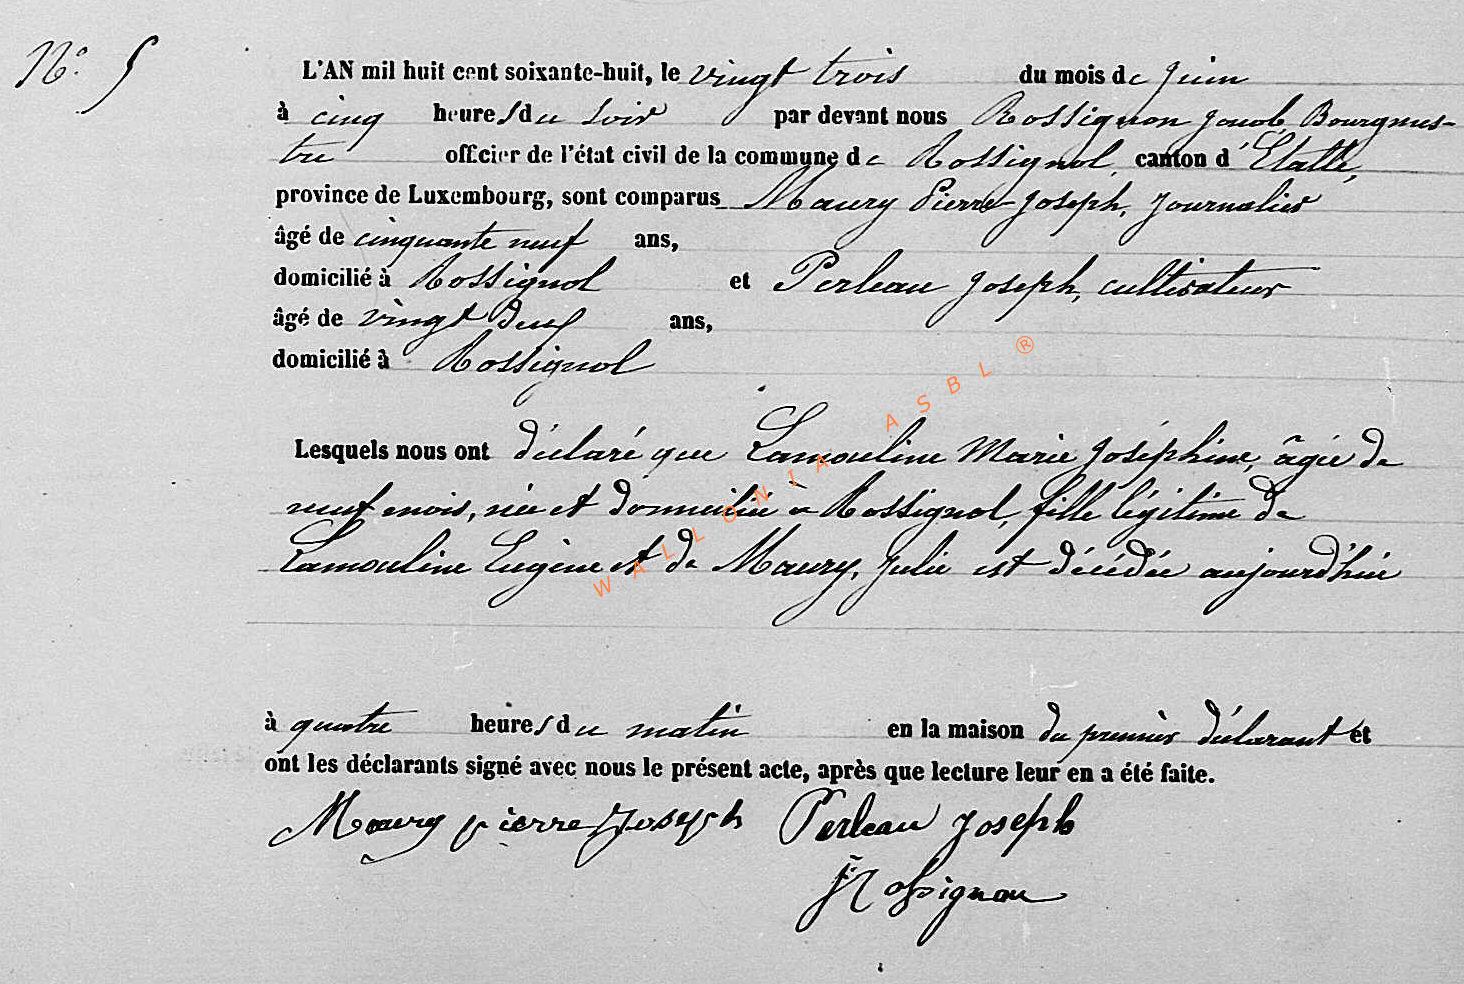 N.° 5
L'AN mil huit cent soixante-huit, le vingt trois du mois de Juin
à cinq heures du soir par devant nous Rossignon Jacob, Bourgmes-
tre officier de l'état civil de la commune de Rossignol, canton d'Etalle,
province de Luxembourg, sont comparus Maury Pierre-Joseph, Journalier
âgé de cinquante neuf ans,
domicilié à Rossignol et Perleau Joseph, cultivateur
âgé de vingt deux ans,
domicilié à Rossignol
Lesquels nous ont déclaré que Lamouline Marie Joséphine, âgée de
neuf mois, née et domiciliée à Rossignol, fille légitime de
Lamouline Eugène et de Maury, Julie est décédée aujourd'hui
à quatre heures du matin en la maison du premier déclarant et
ont les déclarants signé avec nous le présent acte, après que lecture leur en a été faite.
Maury pierre Joseph Perleau Joseph
J Rossignon
WALLONIA ASBL ®